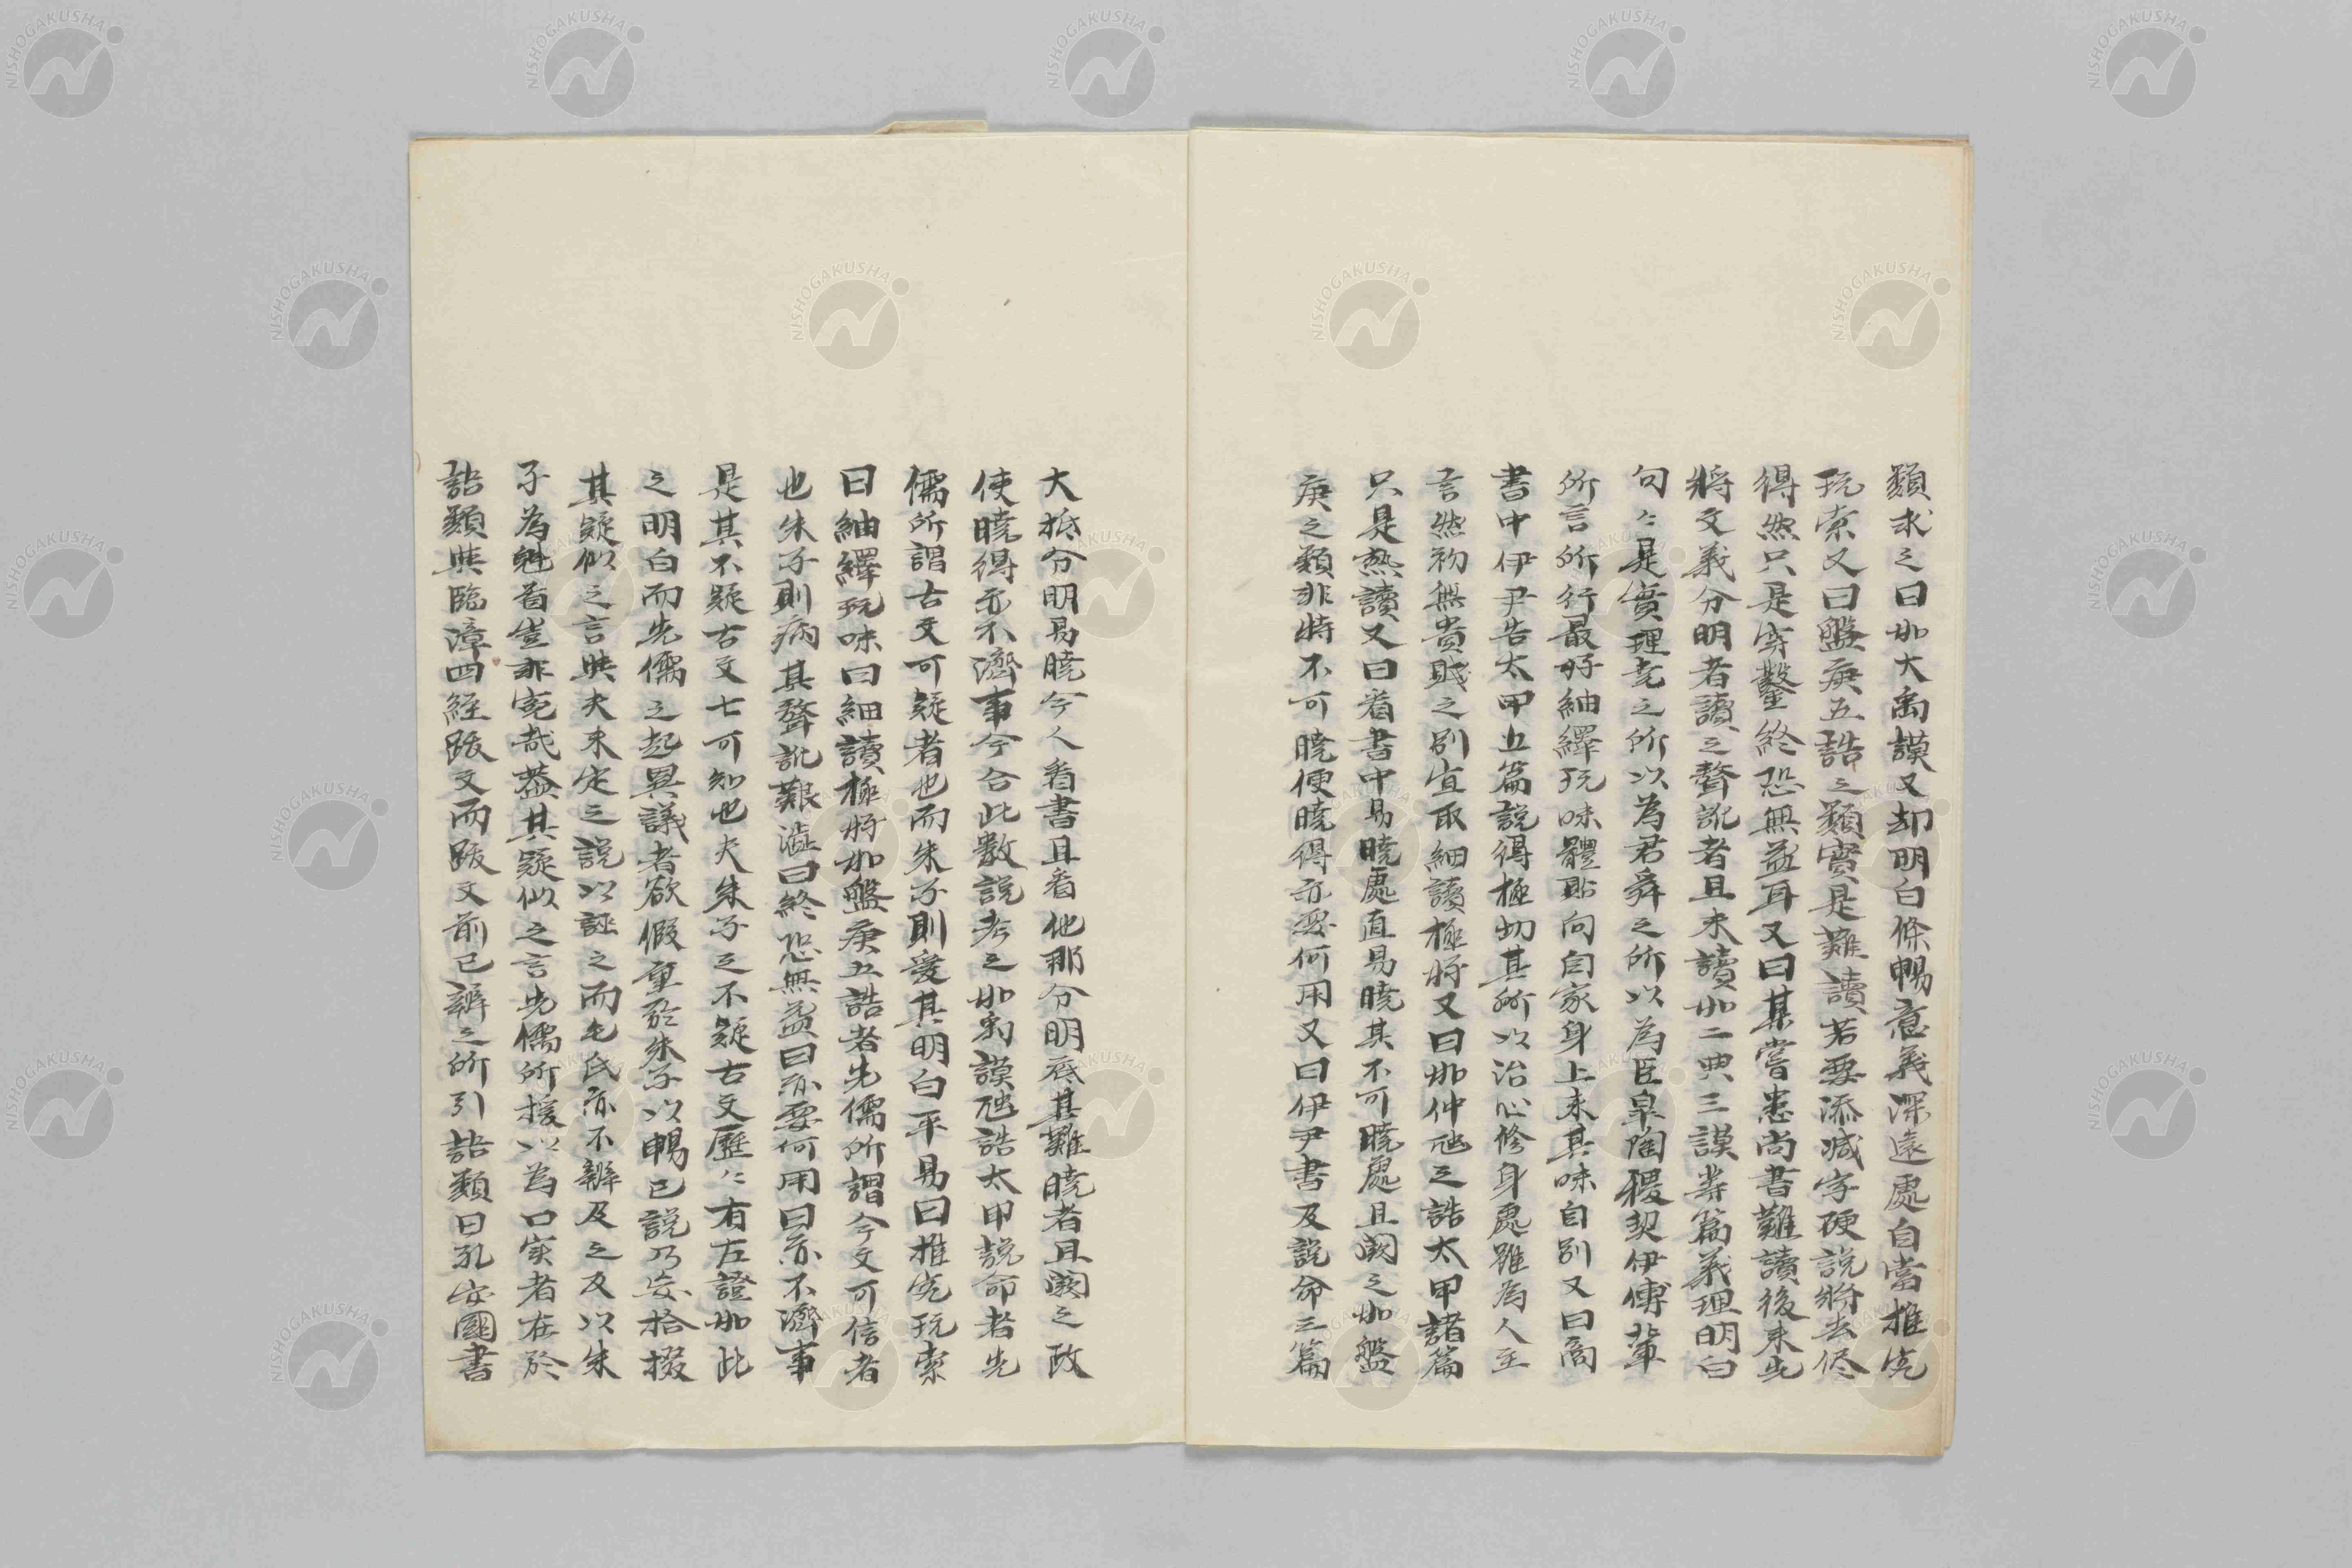 類求之曰如大禹謨又却明白條暢意義深遠處自當推究
玩索又曰盤庚五誥之類實是難讀若要添減字硬說將去侭
得然只是穿鑿終恐無益耳又曰某嘗患尚書難讀後来先
將文義分明者讀之聱訛者且未讀如二典三謨等篇義理明白
句〻是實理堯之所以為君舜之所以為臣皐陶稷契伊傅輩
所言所行最好紬繹玩味體貼向自家身上来其味自別又曰商
書中伊尹告太甲五篇說得極切其所以治心修身處雖為人主
言然初無貴賤之別宜取細讀極好又曰如仲虺之誥太甲諸篇
只是熟讀又曰看書中易曉處直易曉其不可曉處且闕之如盤
庚之類非特不可曉便曉得亦要何用又曰伊尹書及說命三篇
大抵分明易曉今人看書且看他那分明底其難曉者且闕之政
使曉得亦不濟事今合此數說考之如禹謨虺誥太甲說命者先
儒所謂古文可疑者也而朱子則愛其明白平易曰推究玩索
曰紬繹玩味曰細讀極好如盤庚五誥者先儒所謂今文可信者
也朱子則病其聱訛艱澁曰終恐無益曰亦要何用曰亦不濟事
是其不疑古文七可知也夫朱子之不疑古文歷〻有左證如此
之明白而先儒之起異議者欲假重於朱子以暢已說乃妄拾掇
其疑似之言與夫未定之說以誣之而毛氏亦不辨及之及以朱
子為魁首豈非寃哉葢其疑似之言先儒所援以為口実者在於
語類與臨漳四經跋文而跋文前已辨之所引語類曰孔安國書